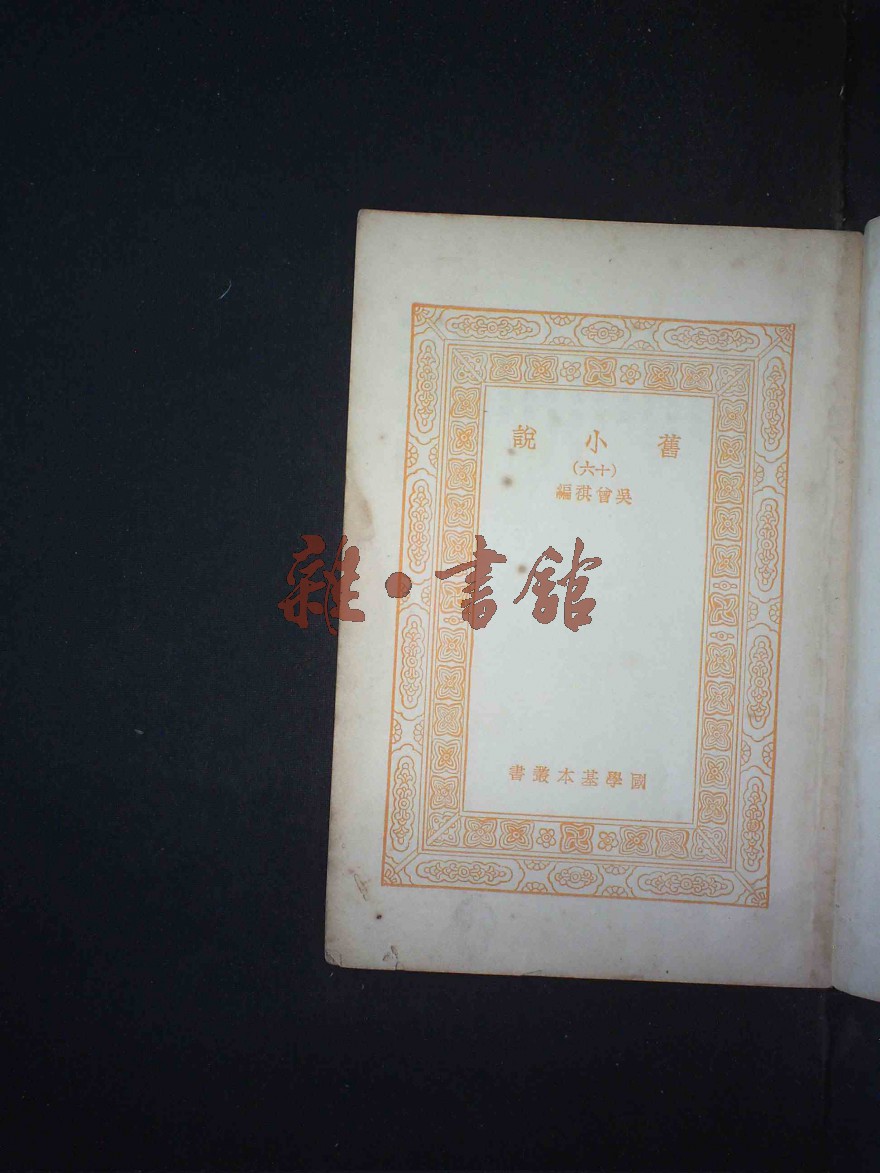 舊小說
(十六)
吳曾祺編
雜·書館
國學基本叢書